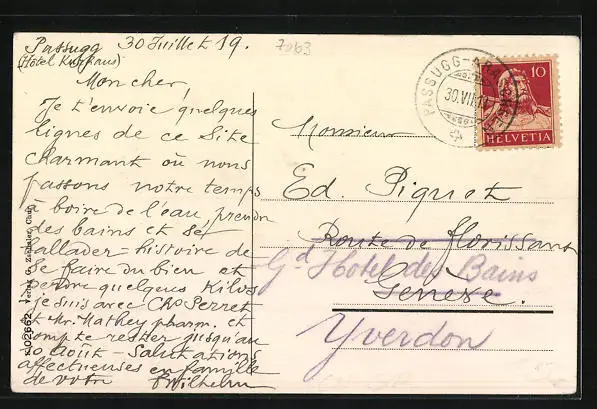 Passugg 30 Juillet 19.
(Hôtel Kurhaus)
Mon cher,
Je t'envoie quelques
lignes de ce Site
charmant où nous
passons notre temps
à boire de l'eau, prendre
les bains et se
ballader - histoire de
se faire du bien et
perdre quelques Kilos
je suis avec Chs Perret
et Mr. Mathey pharm. et
compte rester jusqu'au
10 Août - Salutations
affectueuses en famille
de votre Wilhelm
7063
PASSUGG-ARA
30.VII.19
10
HELVETIA
Monsieur
Ed. Piguet
Route de Florissant
Gd Hotel des Bains
Genève.
Yverdon
02662